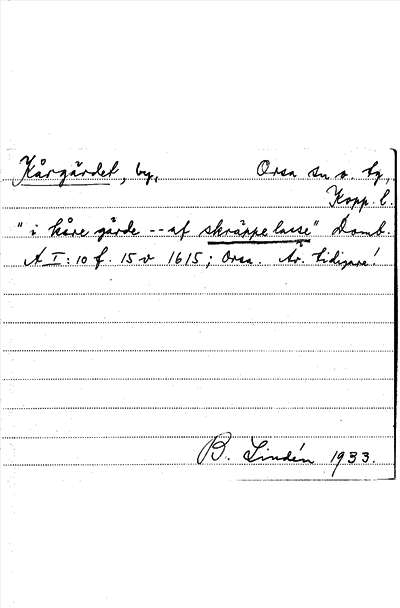 Kårgärdet, by, Orsa sn o. tg,
Kopp. l.
"i kåre gärde -- af skräppe lasse" Domb.
A I: 10 f. 15 v 1615; Orsa. Är. tidigare!
B. Lindén 1933.